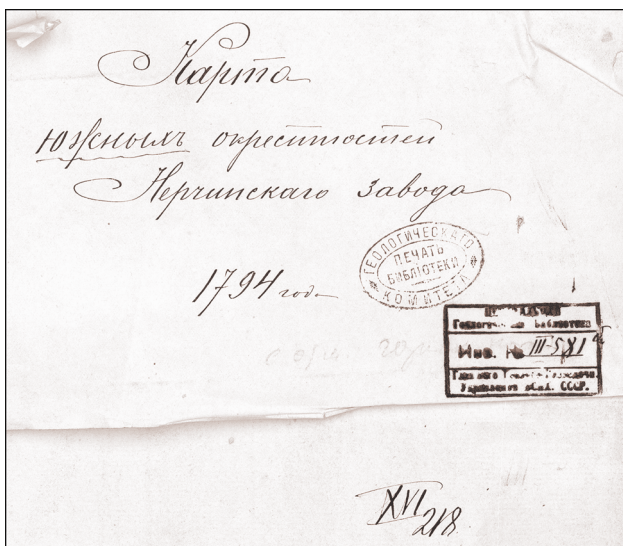 Карта
южныхъ окрестностей
Нерчинскаго Завода
1794 года
ГЕОЛОГИЧЕСКАГО КОМИТЕТА
ПЕЧАТЬ
БИБЛИОТЕКИ
Геологическая Библиотека
Инв. № III-581
Управления СССР.
XVI
218